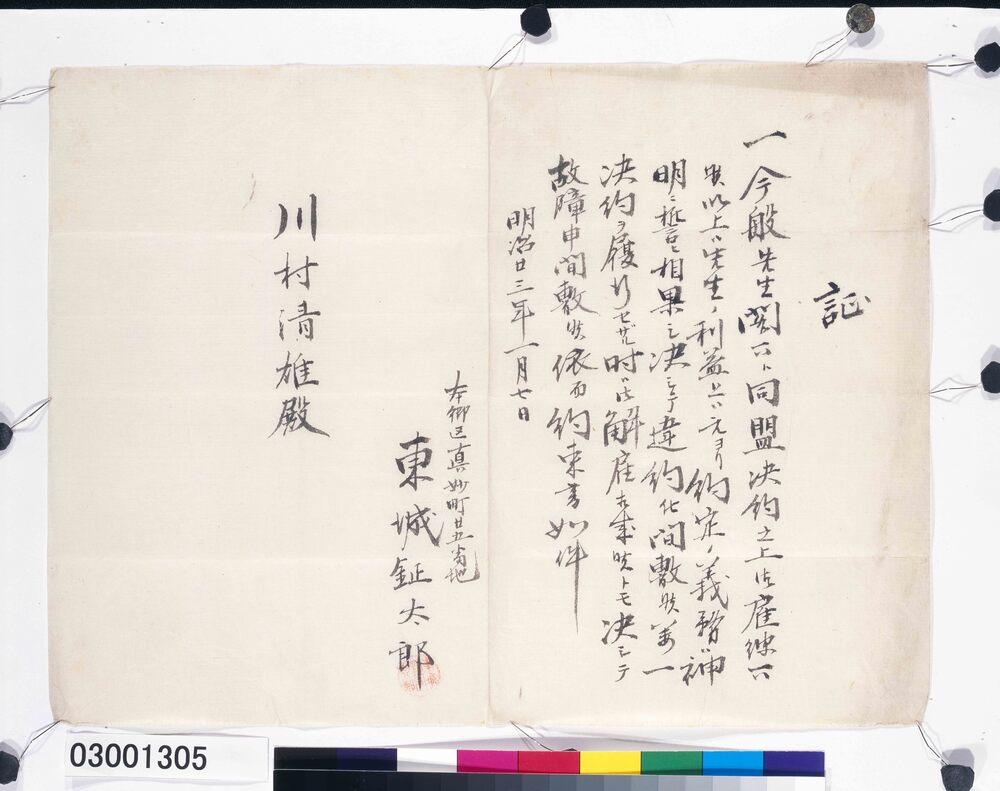 証
一今般先生閣下ト同盟決約之上御雇継下
候以上ハ先生ノ利益上ハ元ヨリ約定ノ義務ハ神
明ニ誓ヒ相果シ決シテ違約仕間敷候万一
決約ヲ履行セザル時ハ御解雇相成候トモ決シテ
故障申間敷候依而約束書如件
明治廿三年一月七日
本郷区真砂町廿五番地
東城鉦太郎
川村清雄殿
03001305